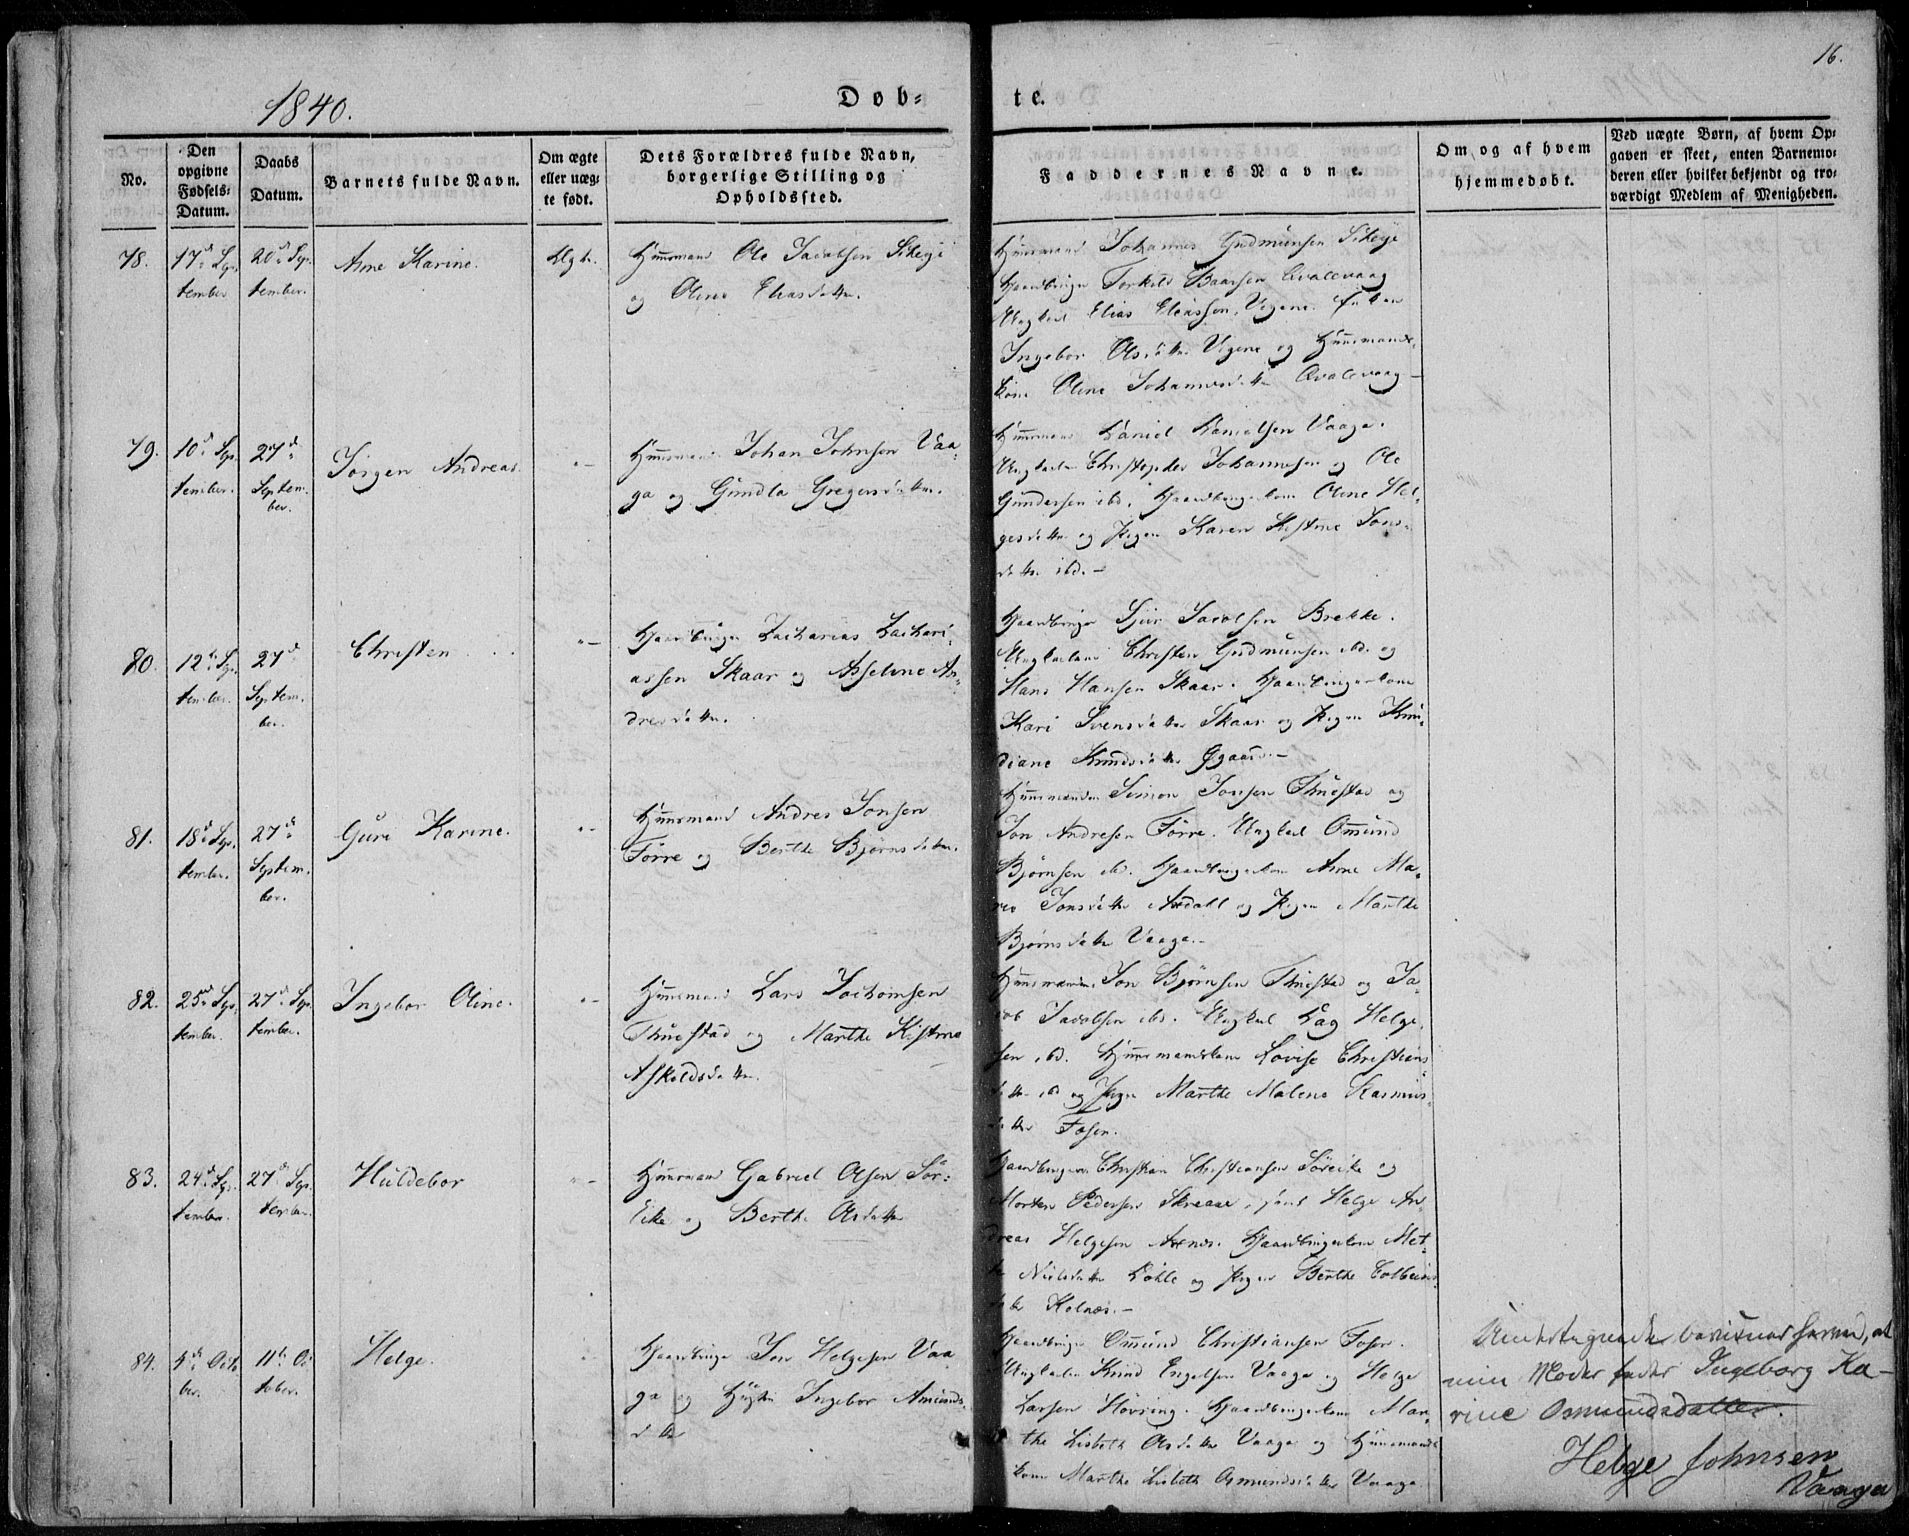 16.
1840.
Døb-
te.
No.
Den
opgivne
Fødsels-
Datum.
Daabs
Datum.
Barnets fulde Navn.
Om ægte
eller uæg-
te født.
Dets Forældres fulde Navn,
borgerlige Stilling og
Opholdssted.
Faddernes Navne.
Om og af hvem
hjemmedøbt.
Ved uægte Børn, af hvem Op-
gaven er skeet, enten Barnemo-
deren eller hvilket bekjendt og tro-
værdigt Medlem af Menigheden.
78.
17de Sep-
tember
20de Sep-
tember.
Anne Karine.
Huusmand Ole Jacobsen
og Oline Eliasdatter.
Huusmand Johannes Gudmunsen
Torkild Baarsen Qvalevaag
Ungkarl Elias Eliassen
Ingebor Olsdatter og Huusmands-
kone Oline Johannesdatter Qvalevaag
79.
10de Sep-
tember.
27de
Septem-
ber.
Jørgen Andreas.
Huusmand Johan Johnsen Vaa-
ga og Gundla Gregersdatter.
Huusmand Daniel Danielsen Vaaga.
Ungkarlene Christopher Johannesen og Ole
Gundersen ibd. Gaardbrugerkone Oline Hel-
gesdatter og Pigen Karen Kistine Jons-
datter ibd. -
80.
12te Sep-
tember.
27de
Septem-
ber.
Christen
Gaardbruger Zacharias Zachari-
assen Skaar og Asseline An-
dresdatter.
Gaardbruger Sjur Jacobsen Brekke.
Ungkarlene Christen Gudmunsen ibd. og
Hans Hansen Skaar. Gaardbrugerkone
Kari Svensdatter Skaar og Pigen Knu-
diane Knudsdatter
81.
18de Sep-
tember.
27de
Septem-
ber.
Guri Karine.
Huusmand Andres Jonsen
Førre og Berthe Bjørnsdatter.
Huusmændene Simon Jonsen Thuestad og
Jon Andresen Førre. Ungkarl Omund
Bjørnsen ibd. Gaardbrugerkone Anne Ma-
rie Jonsdatter Aredahl og Pigen Marthe
Bjørnsdatter Vaaga. -
82.
25de Sep-
tember.
27de Sep-
tember.
Ingebor Oline.
Huusmand Lars Jochomsen
Thuestad og Marthe Kistine
Askildsdatter.
Huusmændene Jon Bjørnsen Thuestad og Ja-
cob Jacobsen ibd. Ungkarl Dag Helge-
sen ibd. Huusmandskone Lovise Christians-
datter ibd og Pigen Marthe Malene Rasmus-
datter Fosen.
83.
24de Sep-
tember.
27de Sep-
tember.
Huldebor
Huusmand Gabriel Olsen Sør-
Eike og Berthe Olsdatter
Gaardbrugerne Christian Christiansen Søreike og
Morten Pedersen Skraae, samt Helge An-
dreas Helgesen Gaardbrugerkone Met-
te Nielsdatter og Pigen Berthe Colbeins-
datter Kolnæs. -
84.
4de Octo-
ber.
11te Oc-
tober.
Helge.
Gaardbruger Jon Helgesen Vaa-
ga og Hustru Ingebor Amunds-
datter
Gaardbruger Omund Christiansen Fosen.
Ungkarlene Knud Engelsen Vaaga og Helge
Larsen Høvring. Gaardbrugerkone Mar-
the Lisbeth Olsdatter Vaaga og Huusmands-
kone Marthe Lisbeth Osmundsdatter Vaaga
Undertegnede bevidner herved, at
min Moder heder Ingeborg Ka-
rine Osmundsdatter.
Helge Johnsen
Vaaga